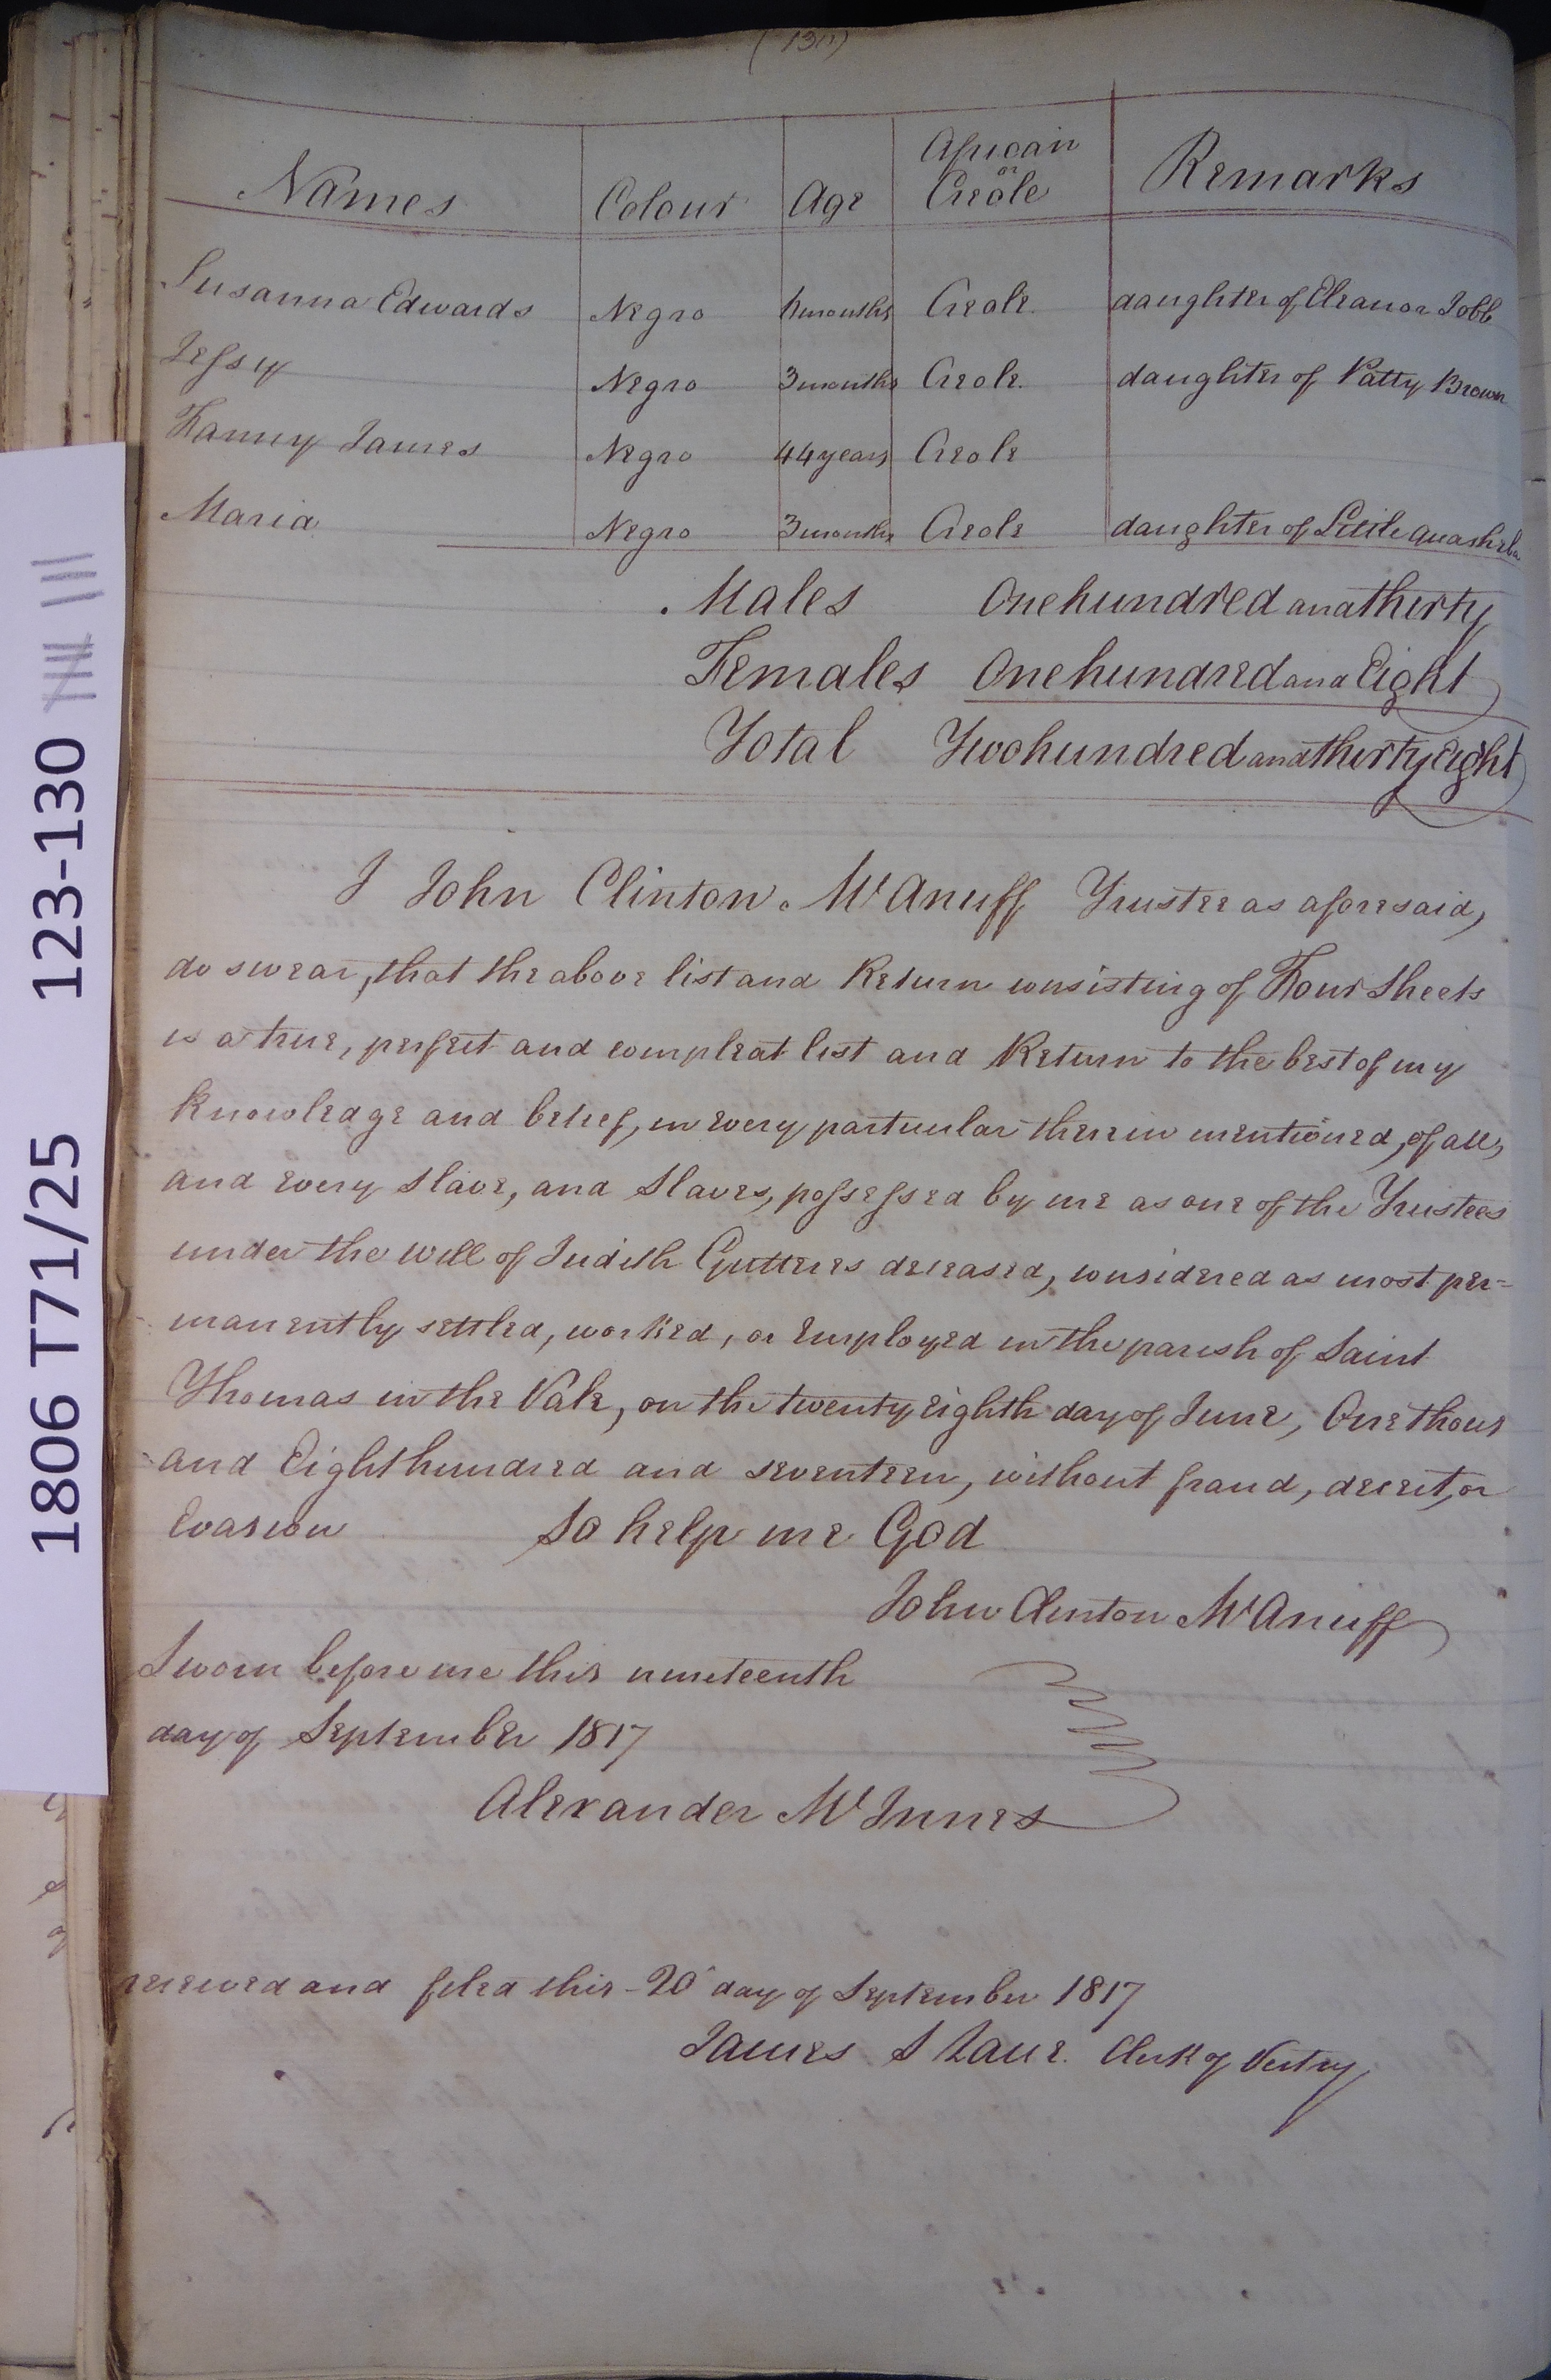 (130)
Names Colour Age African or Creole Remarks
Susanna Edwards Negro 4 months Creole daughter of Eleanor Jobb
Jessy Negro 3 months Creole daughter of Patty Brown
Fanny James Negro 44 years Creole
Maria Negro 3 months Creole daughter of Little Quasheba
Males One hundred and thirty
Females One hundred and Eight
Total Two hundred and thirty Eight
I John Clinton McAnuff Trustee as aforesaid,
do swear, that the above list and Return consisting of Four Sheets
is a true, perfect and compleat list and Return to the best of my
Knowledge and belief, in every particular therein mentioned, of all,
and every Slave, and Slaves, possessed by me as one of the Trustees
under the will of Judith Gutteres deceased, considered as most per=
manently settled, worked, or Employed in the parish of Saint
Thomas in the Vale, on the twenty eighth day of June, One thous
and Eight hundred and seventeen, without fraud, deceit, or
Evasion So help me God
John Clinton McAnuff
Sworn before me this nineteenth
day of September 1817
Alexander McInnes
received and filed this 20 day of September 1817
James S Lane Clerk of Vestry
1806 T71/25 123-130